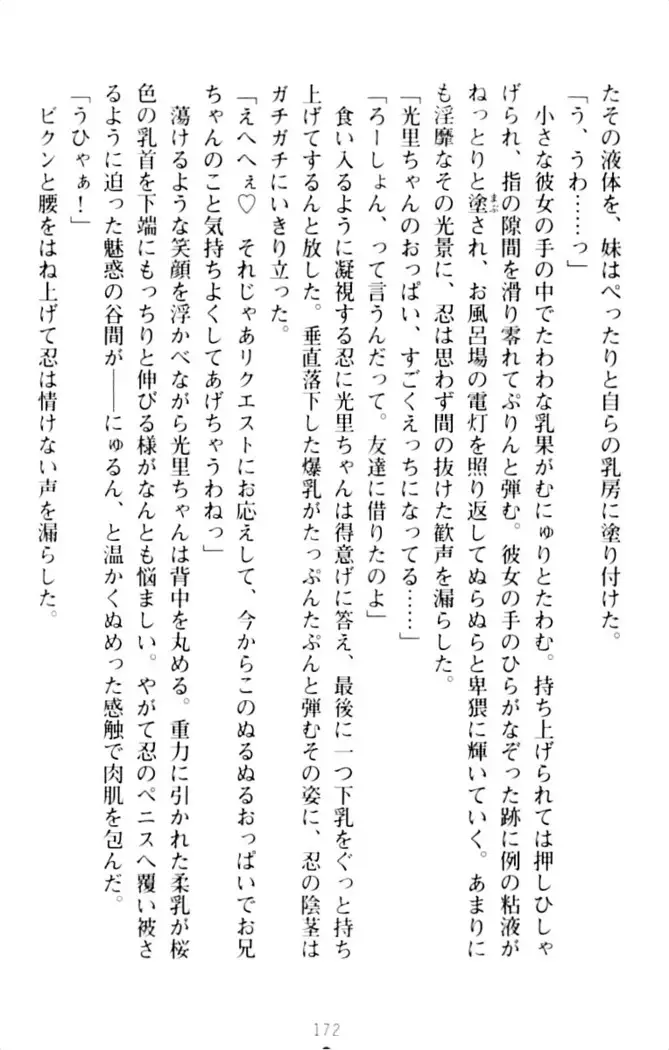 たその液体を、妹はぺったりと自らの乳房に塗り付けた。
「う、うわ……っ」
小さな彼女の手の中でたわわな乳果がむにゅりとたわむ。持ち上げられては押しひしゃ
げられ、指の隙間を滑り零れてぷりんと弾む。彼女の手のひらがなぞった跡に例の粘液が
ねっとりと塗され、お風呂場の電灯を照り返してぬらぬらと卑猥に輝いていく。あまりに
も淫靡なその光景に、忍は思わず間の抜けた歓声を漏らした。
「光里ちゃんのおっぱい、すごくえっちになってる……」
「ろーしょん、って言うんだって。友達に借りたのよ」
食い入るように凝視する忍に光里ちゃんは得意げに答え、最後に一つ下乳をぐっと持ち
上げてするんと放した。垂直落下した爆乳がたっぷんたぷんと弾むその姿に、忍の陰茎は
ガチガチにいきり立った。
「えへへぇ♡　それじゃあリクエストにお応えして、今からこのぬるぬるおっぱいでお兄
ちゃんのこと気持ちよくしてあげちゃうわねっ」
蕩けるような笑顔を浮かべながら光里ちゃんは背中を丸める。重力に引かれた柔乳が桜
色の乳首を下端にもっちりと伸びる様がなんとも悩ましい。やがて忍のペニスへ覆い被さ
るように迫った魅惑の谷間が――にゅるん、と温かくぬめった感触で肉肌を包んだ。
「うひゃぁ！」
ビクンと腰をはね上げて忍は情けない声を漏らした。
172